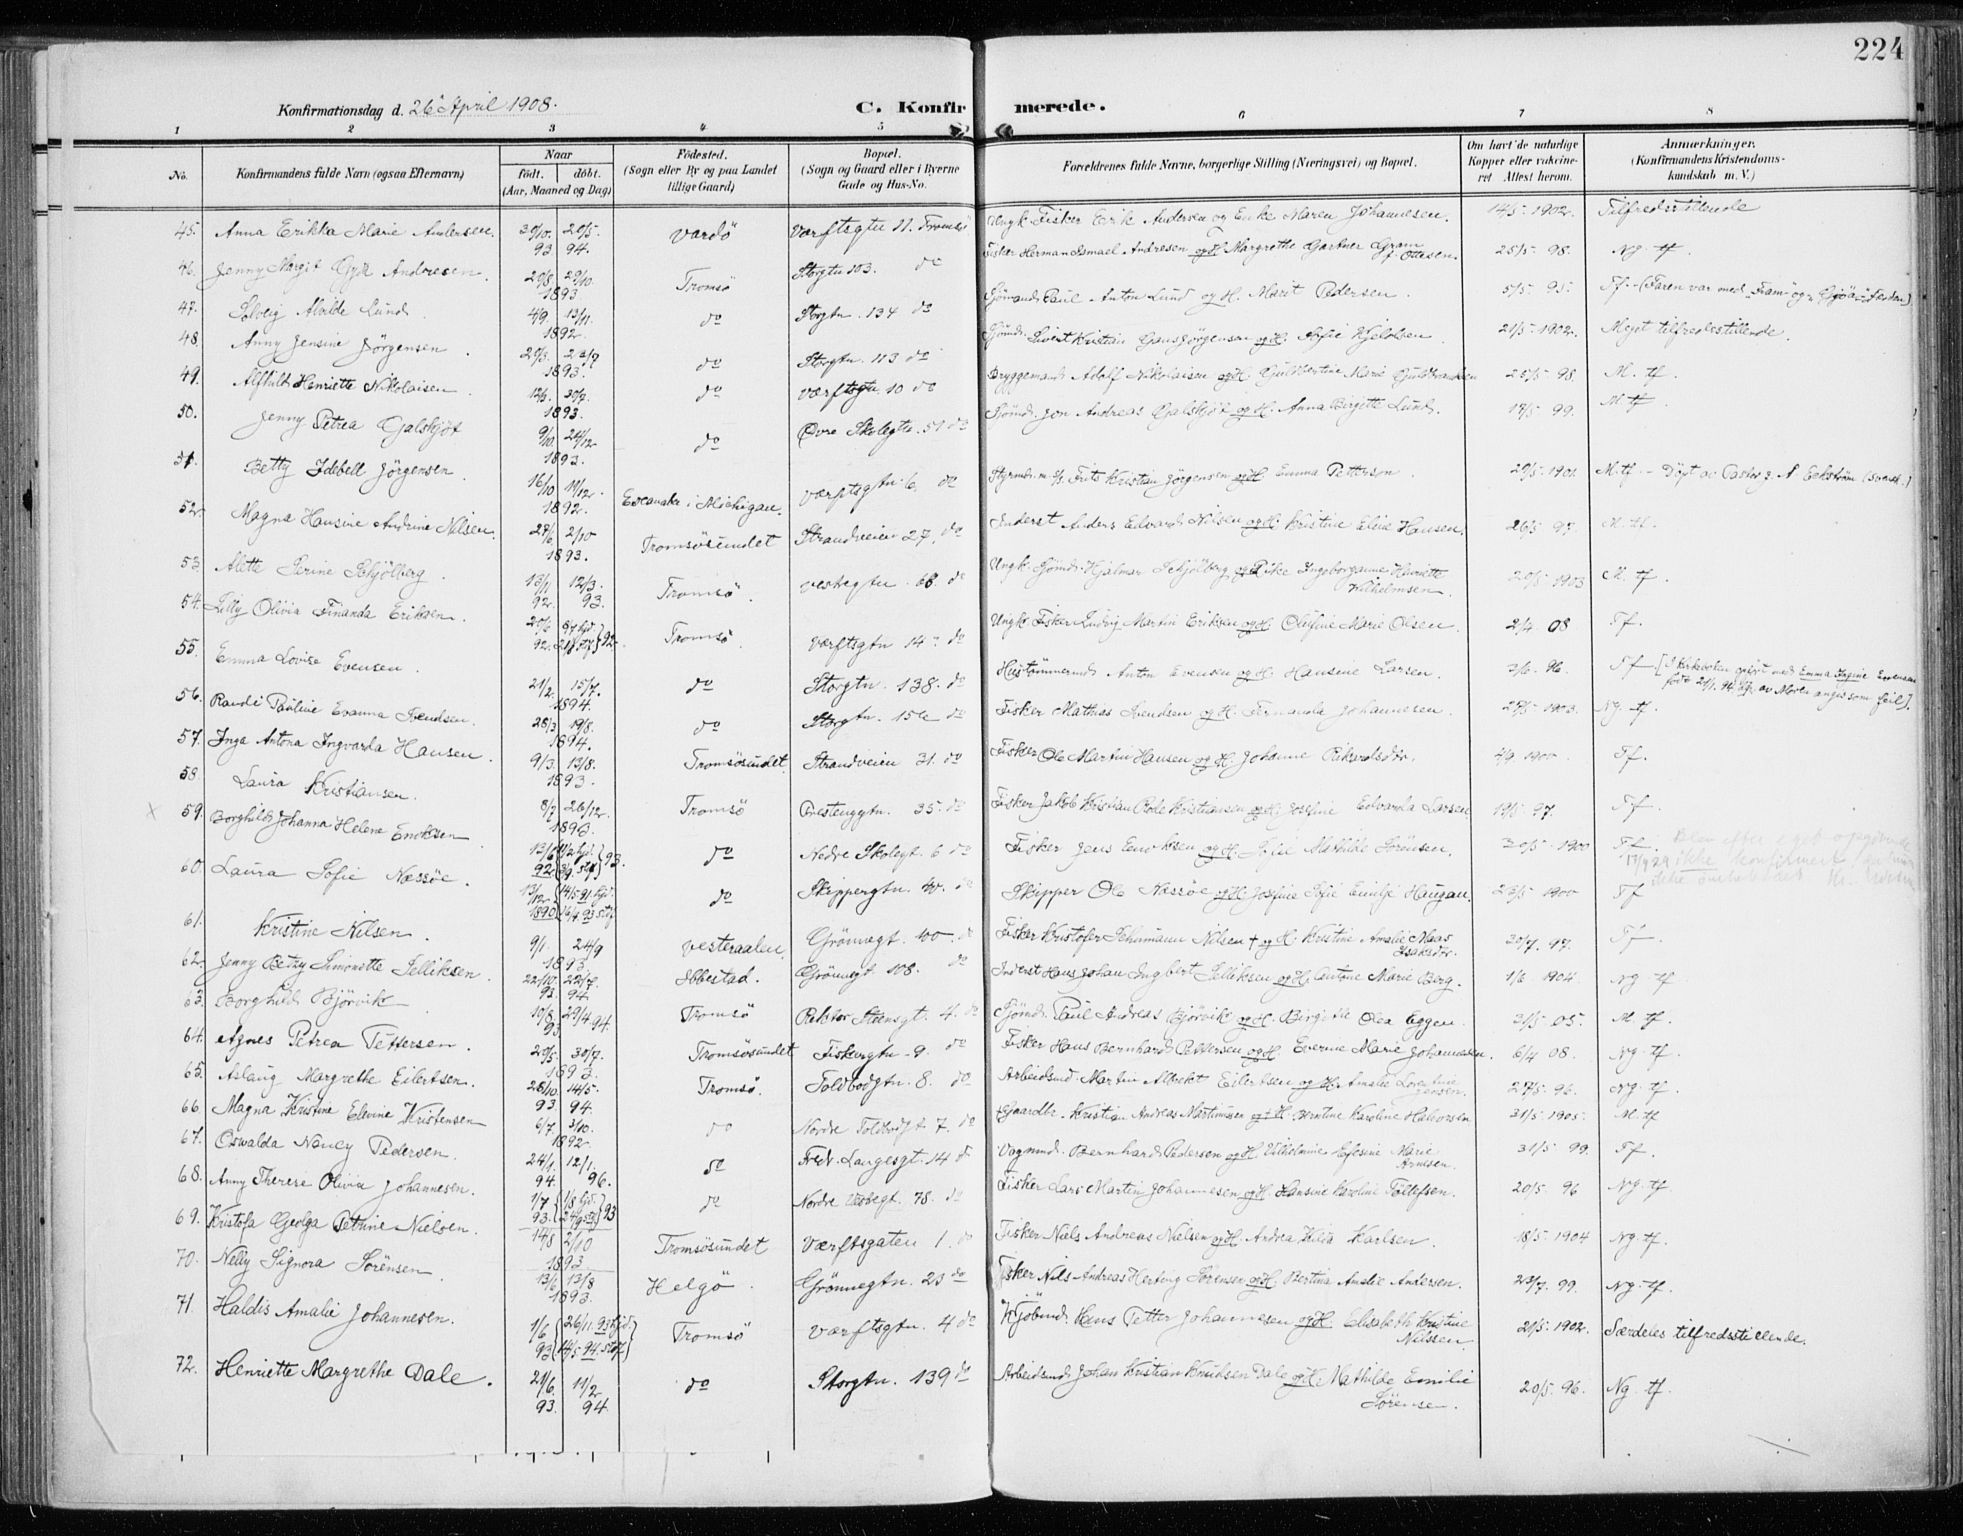 224
Konfirmationsdag d. 26 April 1908.
C. Konfirmerede.
1 2 3 4 5 6 7 8
No.
Konfirmandens fulde Navn (ogsaa Efternavn)
Naar
født. døbt.
(Aar, Maaned og Dag)
Fødested.
(Sogn eller By og paa Landet
tillige Gaard)
Bopæl.
(Sogn og Gaard eller i Byerne
Gade og Hus-No.
Forældrenes fulde Navne, borgerlige Stilling (Næringsvei) og Bopæl.
Om havt de naturlige
Kopper eller vaccine-
ret Attest herom.
Anmærkninger.
(Konfirmandens Kristendoms-
kundskab m. V.)
45. Anna Erikka Marie Andersen. 93 94. Vardö Værftsgtn 11. Tromsö Ungk. Fisker Erik Andersen og Enke Maren Johannesen. 14/5 1902. Tilfredsstillende
46. Jenny Margit Andresen. 29/8 29/10. 1893 Tromsö Storgtn 103. do Fisker Herman Ismael Andresen og H. Margrethe Gram f. Ottesen. 25/5 98. Ng. tf.
47. Solveig Alvilde Lund. 4/9. 13/11. 1892. do Storgtn. 134 do Sjömand Paul Anton Lund og H. Marit Pedersen. 5/5 95. Tf. (Faren var med "Fram" og "Gjöa" Færden)
48. Anny Jensine Jörgensen. 1893. do Storgtn. 113 do Sjömd. Sivert Kristian Jörgensen og H. Sofie 21/5 1902. Meget tilfredsstillende.
49. Alfhild Henriette Nikolaisen. 1893. do Værftsgtn. 10 do Bryggemand Adolf Nikolaisen og H. Marie 25/5 98. M. tf.
50. Jenny Petrea Galskjöt 9/10. 24/12. 1893. do Övre Skolegtn. 51 do Sjömd. Jon Andreas Galskjöt og H. Anna Birgitte Lund. 17/5 99. M tf
51. Betty Idebell Jörgensen. 16/10 11/12. 1892. Escanaba i Michigan. Værftsgtn. 6. do Styrmd. Frits Kristian Jörgensen og H. Emma Petterson. 29/5 1901. M. tf. Döpt av Pastor Eckström (svensk.)
52. Magna Hansine Andrine Nilsen. 2/10 1893. Tromsösundet Strandveien 27. do Inderst Anders Edvard Nilsen og H. Kristine Eline Hansen. 26/5 95. M. tf.
53. Alette Serine Schjölberg. 13/1 12/3. 92. 93. Tromsö. Vestregtn. 68. do Ungk. Sjömd. Hjalmar Schjölberg og Pike Ingeborganne Henriette Vilhelmsen. 20/5 1903 M. tf.
54. Lilly Olivia Finanda Eriksen. 92. Tromsö Værftsgtn 14. do Ungkr. Fisker Ludvig Martin Eriksen og H. Olufine Marie Olsen. 2/4 08 Tf.
55. Emma Lovise Evensen. 21/2. 15/7. 1894. do Storgtn. 138. do Hustömmermd. Anton Evensen og H. Hansine Larsen. 3/6. 96. Tf [I Kirkeboken opfört med Emma Evensen född 21/1. 94. av Moren angis som feil].
56. Randi Pauline Evanna Svendsen. 28/3 19/8. 1894. do Storgtn. do Fisker Mathias Svendsen og H. Fernanda Johannesen. 1903. Ng. tf.
57. Inga Antona Ingvarda Hansen. 9/3. 13/8. 1893. Tromsösundet. Strandveien 31. do Fisker Ole Martin Hansen og H. Johanne Rikardsdtr. 4/9 1900 Tf.
58. Laura Kristiansen. 8/7 26/12. 1893. Tromsö Prestenggtn. 35. do Fisker Jakob Kristian Kristiansen og H. Josefine Edvarda Larsen 19/5 97. Tf.
× 59. Borghild Johanna Helene Enoksen 92. 93. do Nedre Skolegt. 6 do Fisker Jens Enoksen og H. Sofie Mathilde Sörensen. 30/5 1900 Tf. Blev efter eget opgivende ikke konfirmert
60. Laura Sofie Næssöe. 13/12 1890 do Skippergtn. 40. do Skipper Ole Næssöe og H. Josefine Sofie Emilje Haugan. 23/5 1900 Tf
61. Kristine Nilsen. 9/1. 24/9 1893. Vesteraalen. Grönnegt. 100. do Fisker Kristofer Schumann Nilsen † og H. Kristine Amalie Isaksdtr. 30/7. 97. Tf.
62. Jenny Betzy Simonette Jelliksen. 22/10. 22/7. 93. 94 Ibbestad. Grönnegt. 108. do Inderst Hans Johan Ingbert Jelliksen og H. Antone Marie Berg. 1/6 1904. Ng. tf.
63. Borghild Björvik 10/8. 29/4 94. 93 Tromsö Rektor Steensgt. 4. do Sjömd. Paul Andreas Björvik og H. Birgitte Olea Eggen. 31/5 05. M. tf.
64. Agnes Petrea Pettersen. 20/5. 30/7. 1893. Tromsösundet Fiskergtn. 9. do Fisker Hans Bernhard Pettersen og H. Everine Marie Johannesen. 6/4 08. Ng. tf.
65. Aslaug Margrethe Eilertsen. 28/10. 14/5. 93. 94. Tromsö. Toldbodgtn. 8. do Arbeidsmd. Martin Albrikt Eilertsen og H. Amalie Lorentine Jensen. 27/5. 96. Ng. tf.
66. Magna Kristine Elevine Kristensen 6/7. 3/10. 1892. do Nordre Toldbodgt 7. do Gaardbr. Kristian Andreas Martinussen og H. Karoline Halvorsen 31/5 1905. M. tf
67. Oswalda Nancy Pedersen. 24/1. 12/1. 94. 96. do Fredr. Langesgt. 14 d Vognmd. Bernhard Pedersen og H. Vilhelmine Efesine Marie Arntsen. 31/5 99. Tf.
68. Anny Therese Olivia Johannesen. 1/7 1/8 hjd. 93. 24/9 stf. 93 do Nordre 78. do Fisker Lars Martin Johannesen og H. Hansine Karoline Tollefsen. 20/5. 96 Ng. tf
69. Kristofa Georga Petrine Nielsen. 14/8 2/10 1893. Tromsösundet Værftsgaten 1. do Fisker Niels Andreas Nielsen og H. Andrea Karlsen. 18/5 1904 Ng. tf.
70. Nelly Signora Sörensen 13/6 13/8 1893. Helgö. Grönnegtn. 23 do Fisker Nils Andreas Herting Sörensen og H. Bertina Amalie Andersen. 23/7. 99. Ng. tf.
71. Haldis Amalie Johannesen. 1/6 93 26/11. 93 hjd. 14/5 94. stf. Tromsö Værftsgtn. 4 do Kjöbmd. Hans Petter Johannesen og H. Elisabeth Kristine Nilssen. 21/5. 1902. Særdeles tilfredsstillende.
72. Henriette Margrethe Dale. 21/6. 11/2. 93. 94. do Storgtn. 139 do Arbeidsmd. Johan Kristian Knudsen Dale og H. Mathilde Emilie Sörensen. 20/5. 96. Ng. tf.